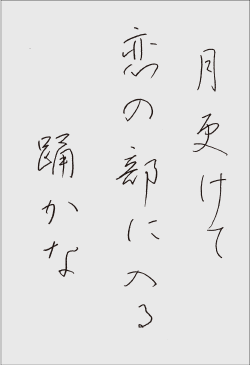 月更けて
恋の部に入る
踊かな